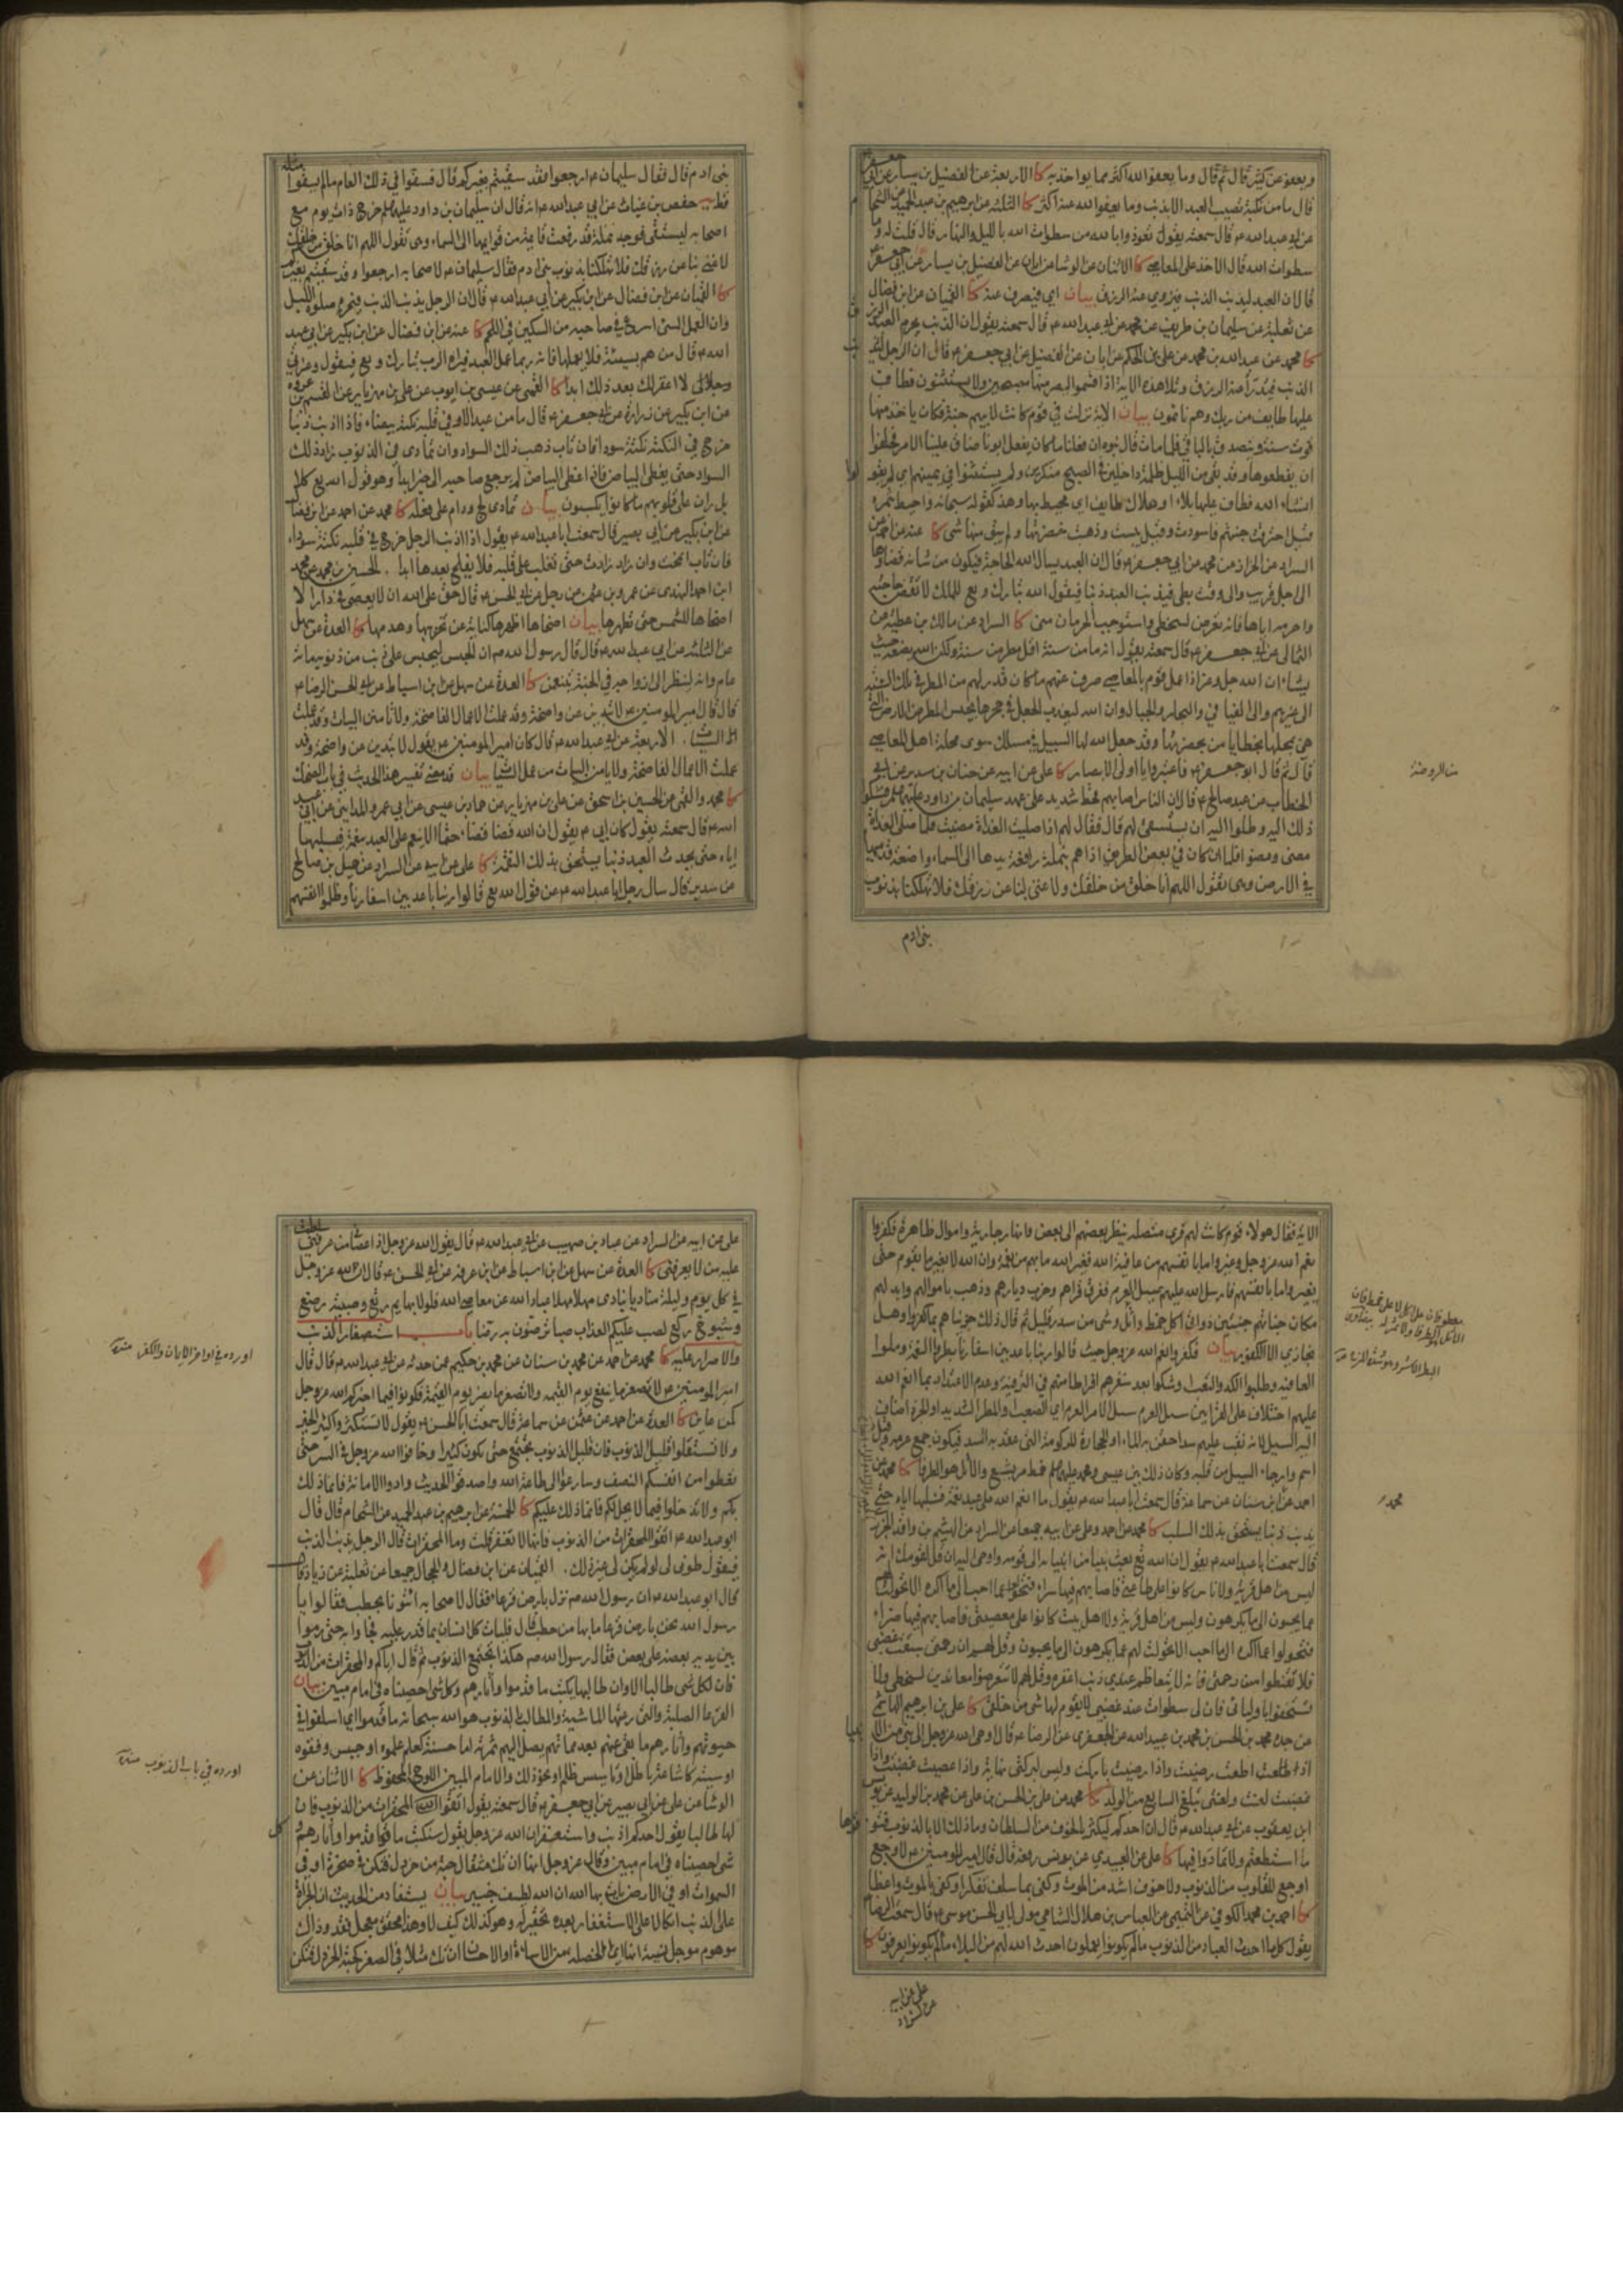 ويعفو عن كثير قال ثم قال وما يعفو الله اكثر مما يواخذ به كا الاربعة عن الفضيل بن يسار عن ابي جعفر
قال ما من نكبة تصيب العبد الا بذنب وما يعفو الله عنه اكثر كا الثلثة عن ابرهيم بن عبد الحميد عن الشحام
عن ابي عبد الله ع قال سمعته يقول تعوذوا بالله من سطوات الله بالليل والنهار قال قلت له وما
سطوات الله قال الاخذ على المعاصي كا الاثنان عن الوشا عن ابان عن الفضيل بن يسار عن ابي جعفر ع
قال ان العبد ليذنب الذنب فيزوي عنه الرزق بيان اي فيصرف عنه كا القميان عن ابن فضال
عن ثعلبة عن سليمان بن طريف عن محمد عن ابي عبد الله ع قال سمعته يقول ان الذنب يحرم العبد الرزق
كا محمد عن عبد الله بن محمد عن علي بن الحكم عن ابان عن الفضيل عن ابي جعفر ع قال ان الرجل ليذنب
الذنب فيدرأ عنه الرزق وتلا هذه الاية اذ اقسموا ليصرمنها مصبحين ولا يستثنون فطاف
عليها طايف من ربك وهم نائمون بيان الاية نزلت في قوم كانت لابيهم جنة فكان ياخذ منها
قوت سنة ويتصدق بالباقي فلما مات قال بنوه ان فعلنا ما كان يفعل ابونا ضاق علينا الامر فحلفوا
ان يقطعوها وقد بقي من الليل ظلمة داخلين في الصبح منكرين ولم يستثنوا في يمينهم اي لم يقولوا
انشاء الله فطاف عليها بلاء او هلاك طايف اي محيط بها وهذه كقوله سبحانه واحيط بثمره
قيل احترقت جنتهم فاسودت وقيل يبست وذهبت خضرتها ولم يبق منها شي كا عنه عن احمد عن
السراد عن الخراز عن محمد عن ابي جعفر ع قال ان العبد يسال الله الحاجة فيكون من شانه قضاوها
الى اجل قريب والى وقت بطي فيذنب العبد ذنبا فيقول الله تبارك وتع للملك لا تقض حاجته
واحرمه اياها فانه تعرض لسخطي واستوجب الحرمان مني كا السراد عن مالك بن عطية عن
الثمالي عن ابي جعفر ع قال سمعته يقول انه ما من سنة اقل مطرا من سنة ولكن الله يضعه حيث
يشاء ان الله جل وعز اذا عمل قوم بالمعاصي صرف عنهم ما كان قدر لهم من المطر في تلك السنة
الى غيرهم والى الفيافي والبحار والجبال وان الله ليعذب الجعل في جحرها يحبس المطر عن الارض التي
هي بمحلها بخطايا من بحضرتها وقد جعل الله لها السبيل في مسلك سوى محلة اهل المعاصي
قال ثم قال ابو جعفر ع فاعتبروا يا اولي الابصار كا علي عن ابيه عن حنان بن سدير عن ابي
الخطاب عن عبد صالح ع قال ان الناس اصابهم قحط شديد على عهد سليمان بن داود عليهما السلام فشكوا
ذلك اليه وطلبوا اليه ان يستسقي لهم قال فقال لهم اذا صليت الغداة مضيت فلما صلى الغداة
مضى ومضوا فلما ان كان في بعض الطريق اذا هم بنملة رافعة يدها الى السماء واضعة قدميها
في الارض وهي تقول اللهم انا خلق من خلقك ولا غنى لنا عن رزقك فلا تهلكنا بذنوب
بني ادم
من الروضة
بني ادم قال فقال سليمان ع ارجعوا فقد سقيتم بغيركم قال فسقوا في ذلك العام ما لم يسقوا مثله
قط يه حفص بن غياث عن ابي عبد الله ع انه قال ان سليمان بن داود عليه خرج ذات يوم مع
اصحابه ليستسقي فوجد نملة قد رفعت قائمة من قوائمها الى السماء وهي تقول اللهم انا خلق من خلقك
لا غنى بنا عن رزقك فلا تهلكنا بذنوب بني ادم فقال سليمان ع لاصحابه ارجعوا وقد سقيتم بغيركم
كا القميان عن ابن فضال عن ابن بكير عن ابي عبد الله ع قال ان الرجل يذنب الذنب فيحرم صلوة الليل
وان العمل السيئ اسرع في صاحبه من السكين في اللحم كا عنه عن ابن فضال عن ابن بكير عن ابي عبد
الله ع قال من هم بسيئة فلا يعملها فانه ربما عمل العبد فيراه الرب تبارك وتع فيقول وعزتي
وجلالي لا اغفر لك بعد ذلك ابدا كا القمي عن عيسى بن ايوب عن علي بن مهزيار عن القسم بن عروة
عن ابن بكير عن زرارة عن ابي جعفر ع قال ما من عبد الا وفي قلبه نكتة بيضاء فاذا اذنب ذنبا
خرج في النكتة نكتة سودا فان تاب ذهب ذلك السواد وان تمادى في الذنوب زاد ذلك
السواد حتى يغطي البياض فاذا غطى البياض لم يرجع صاحبه الى خير ابدا وهو قول الله تع كلا
بل ران على قلوبهم ما كانوا يكسبون بيان تمادى لج ودام على فعله كا محمد عن احمد عن ابن فضال
عن ابن بكير عن ابي بصير قال سمعت ابا عبد الله ع يقول اذا اذنب الرجل خرج في قلبه نكتة سوداء
فان تاب انمحت وان زاد زادت حتى تغلب على قلبه فلا يفلح بعدها ابدا . الحسين بن محمد عن محمد
ابن احمد النهدي عن عمرو بن عثمن عن رجل عن ابي الحسن ع قال حق على الله ان لا يعصى في دار الا
اضحاها للشمس حتى تطهرها بيان اضحاها اظهرها كناية عن تخريبها وهدمها كا العدة عن سهل
عن الثلثة عن ابي عبد الله ع قال قال رسول الله ص ان العبد ليحبس على ذنب من ذنوبه مائة
عام وانه لينظر الى ازواجه في الجنة يتنعمن كا العدة عن سهل عن ابن اسباط عن ابي الحسن الرضا ع
قال قال امير المومنين ع لا تبدين عن واضحة وقد عملت الاعمال الفاضحة ولا تامن البيات وقد عملت
السيئات . الاربعة عن ابي عبد الله ع قال كان امير المومنين ع يقول لا تبدين عن واضحة وقد
عملت الاعمال الفاضحة ولا يامن البيات من عمل السيئات بيان قد مضى تفسير هذا الحديث في باب الضحك
كا محمد والقمي عن الحسين بن اسحق عن علي بن مهزيار عن حماد بن عيسى عن ابي عمرو المدايني عن ابي عبد
الله ع قال سمعته يقول كان ابي ع يقول ان الله قضا قضاء حتما الا ينعم على العبد بنعمة فيسلبها
اياه حتى يحدث العبد ذنبا يستحق بذلك النقمة كا علي عن ابيه عن السراد عن جميل بن صالح
عن سدير قال سال رجل ابا عبد الله ع عن قول الله تع قالوا ربنا باعد بين اسفارنا وظلموا انفسهم
الاية فقال هولاء قوم كانت لهم قرى متصلة ينظر بعضهم الى بعض وانهار جارية واموال ظاهرة فكفروا
نعم الله عز وجل وغيروا ما بانفسهم من عافية الله فغير الله ما بهم من نعمة وان الله لا يغير ما بقوم حتى
يغيروا ما بانفسهم فارسل الله عليهم سيل العرم ففرق قراهم وخرب ديارهم وذهب باموالهم وابدلهم
مكان جناتهم جنتين ذواتى اكل خمط واثل وشي من سدر قليل ثم قال ذلك جزيناهم بما كفروا وهل
نجازي الا الكفور بيان فكفروا انعم الله عز وجل حيث قالوا ربنا باعد بين اسفارنا بطروا النعمة وملوا
العافية وطلبوا الكد والتعب وشكوا بعد سفرهم افراطا منهم في الترفية وعدم الاعتداد بما انعم الله
عليهم اختلاف على القرابين سيل العرم سيل الامر العرم اي الصعب والمطر الشديد او الجرذ اضاف
اليه السيل لانه نقب عليهم سدا حقن به الماء او الحجارة المركومة التي عقد به السد فيكون جمع عرمة وقيل
اسم واد جاء السيل من قبله وكان ذلك بين عيسى ومحمد خمط مر بشع والاثل هو الطرفا كا محمد عن
احمد عن ابن سنان عن سماعة قال سمعت ابا عبد الله ع يقول ما انعم الله على عبد نعمة فسلبها اياه حتى
يذنب ذنبا يستحق بذلك السلب كا محمد عن احمد وعلي عن ابيه جميعا عن السراد عن الهيثم بن واقد الجزري
قال سمعت ابا عبد الله ع يقول ان الله تع بعث نبيا من انبيائه الى قومه واوحى اليه ان قل لقومك انه
ليس من اهل قرية ولا ناس كانوا على طاعتي فاصابهم فيها سراء فتحولوا عما احب الى ما اكره الا تحولت لهم
عما يحبون الى ما يكرهون وليس من اهل قرية ولا اهل بيت كانوا على معصيتي فاصابهم فيها ضراء
فتحولوا عما اكره الى ما احب الا تحولت لهم عما يكرهون الى ما يحبون وقل لهم ان رحمتي سبقت غضبي
فلا تقنطوا من رحمتي فانه لا يتعاظم عندي ذنب اغفره وقل لهم لا تتعرضوا معاندين لسخطي ولا
تستخفوا باوليائي فان لي سطوات عند غضبي لا يقوم لها شي من خلقي كا علي بن ابرهيم الهاشمي
عن جده محمد بن الحسن بن محمد بن عبيد الله عن الجعفري عن الرضا ع قال اوحى الله عز وجل الى نبي من الانبيا
اذا اطعت رضيت واذا رضيت باركت وليس لبركتي نهاية واذا عصيت غضبت واذا
غضبت لعنت ولعنتي تبلغ السابع من الولد كا محمد عن علي بن الحسن بن علي عن محمد بن الوليد عن يونس
ابن يعقوب عن ابي عبد الله ع قال ان احدكم ليكثر به الخوف من السلطان وما ذلك الا بالذنوب فتوقوها
ما استطعتم ولا تمادوا فيها كا علي عن العبيدي عن يونس رفعه قال قال امير المومنين ع لا وجع
اوجع للقلوب من الذنوب ولا خوف اشد من الموت وكفى بما سلف تفكرا وكفى بالموت واعظا
كا احمد بن محمد الكوفي عن التيمي عن العباس بن هلال الشامي مولى لابي الحسن موسى ع قال سمعت الرضا ع
يقول كلما احدث العباد من الذنوب ما لم يكونوا يعملون احدث الله لهم من البلاء ما لم يكونوا يعرفون كا
علي عن ابيه
عن السراد
محمد
علي عن ابيه عن السراد عن عباد بن صهيب عن ابي عبد الله ع قال يقول الله عز وجل اذا عصاني من عرفني سلطت
عليه من لا يعرفني كا العدة عن سهل عن ابن اسباط عن ابن عرفة عن ابي الحسن ع قال ان لله عز وجل
في كل يوم وليلة مناديا ينادي مهلا مهلا عباد الله عن معاصي الله فلولا بهايم رتع وصبية رضع
وشيوخ ركع لصب عليكم العذاب صبا ترضون به رضا باب استصغار الذنب
والاصرار عليه كا محمد عن احمد عن محمد بن سنان عن محمد بن حكيم عمن حدثه عن ابي عبد الله ع قال قال
امير المومنين ع لا تصغر ما ينفع يوم القيمة ولا تصغر ما يضر يوم القيمة فكونوا فيما اخبركم الله عز وجل
كمن عاين كا العدة عن احمد عن عثمن عن سماعة قال سمعت ابا الحسن ع يقول لا تستكثروا كثير الخير
ولا تستقلوا قليل الذنوب فان قليل الذنوب يجتمع حتى يكون كثيرا وخافوا الله عز وجل في السر حتى
تعطوا من انفسكم النصف وسارعوا الى طاعة الله واصدقوا الحديث وادوا الامانة فانما ذلك
لكم ولا تدخلوا فيما لا يحل لكم فانما ذلك عليكم كا الخمسة عن ابرهيم بن عبد الحميد عن الشحام قال قال
ابو عبد الله ع اتقوا المحقرات من الذنوب فانها لا تغفر قلت وما المحقرات قال الرجل يذنب الذنب
فيقول طوبى لي لو لم يكن لي غير ذلك . القميان عن ابن فضال والحجال جميعا عن ثعلبة عن زياد قال
قال ابو عبد الله ع ان رسول الله ص نزل بارض قرعاء فقال لاصحابه ائتونا بحطب فقالوا يا
رسول الله نحن بارض قرعا ما بها من حطب قال فليات كل انسان بما قدر عليه فجاوا به حتى رموا
بين يديه بعضه على بعض فقال رسول الله ص هكذا تجتمع الذنوب ثم قال اياكم والمحقرات من الذنوب
فان لكل شي طالبا الا وان طالبها يكتب ما قدموا واثارهم وكل شي احصيناه في امام مبين بيان
القرعا الصلبة والتي رعتها الماشية والمطالب للذنوب هو الله سبحانه ما قدموا اي اسلفوا في
حيوتهم واثارهم ما بقي عنهم بعد مماتهم يصل اليهم ثمرته اما حسنة كعلم علموه او حبس وقفوه
او سيئة كاشاعة باطل وتاسيس ظلم او نحو ذلك والامام المبين اللوح المحفوظ كا الاثنان عن
الوشا عن علي عن ابي بصير عن ابي جعفر ع قال سمعته يقول اتقوا المحقرات من الذنوب فان
لها طالبا يقول احدكم اذنب واستغفر ان الله عز وجل يقول سنكتب ما قدموا واثارهم وكل
شي احصيناه في امام مبين وقال عز وجل انها ان تك مثقال حبة من خردل فتكن في صخرة او في
السموات او في الارض يات بها الله ان الله لطيف خبير بيان يستفاد من الحديث ان الجراة
على الذنب اتكالا على الاستغفار بعده تحقير له وهو كذلك كيف لا وهذا محقق معجل نقد وذاك
موهوم موجل نسية انها اي الخصلة من الاساءة او الاحسان ان تك مثلا في الصغر كحبة الخردل فتكن
اورده في اواخر الايمان والكفر منه
اورده في باب الذنوب منه